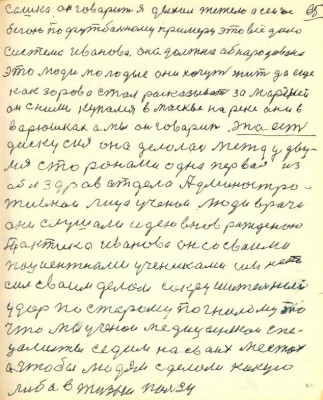 салка он говарит я дышал тежело а сейчас 95
бегаю по футбольному примеру это всё дала
система Иванова, она должна абнародована
это люди молодые они хочут жит да еще
как здорова стал расказыват за Марией
он с ними купался в Маскве на реке они в
варюшках а мы он говарит, эта ест
дискусия она делалас между дву-
мя сторонами одна первая из
аблздравотдела Администро-
тивнаи лица ученаи люди врачи
они слушали идею внов рожденаю
Практика Иванова он со сваими
пацыентнами учениками им
сил сваим делом сокрушителний
удар по старому по гнилому это
что мы ученаи медицынскои спе-
цалисты седим на сваих местах
а чтобы людям сделали какую
либа в жизни ползу